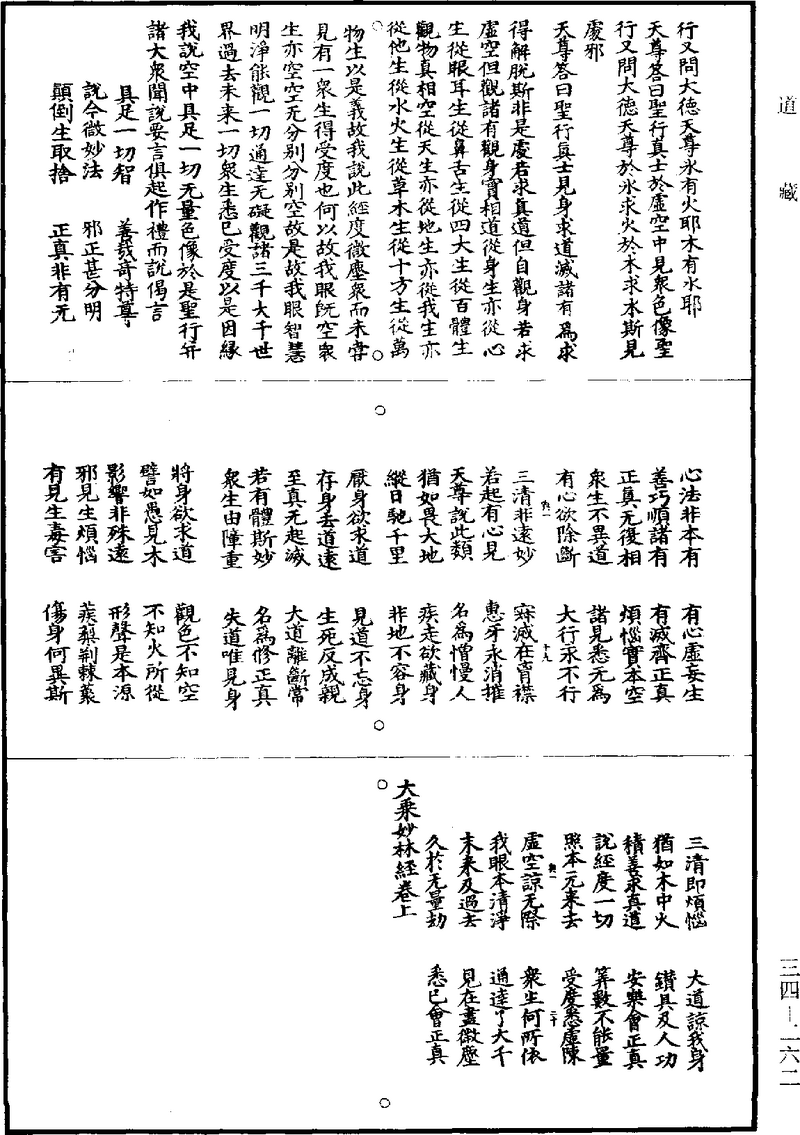 道藏
行又問大德天尊水有火耶木有水耶
天尊答曰聖行真士於虛空中見衆色像聖
行又問大德天尊於水求火於木求水斯見
處邪
天尊答曰聖行真士見身求道滅諸有為求
得解脫斯非是處若求真道但自觀身若求
虛空但觀諸有觀身實相道從身生亦從心
生從眼耳生從鼻舌生從四大生從百體生
觀物真相空從天生亦從地生亦從我生亦
從他生從水火生從草木生從十方生從萬
物生以是義故我說此經度微塵衆而未嘗
見有一衆生得受度也何以故我眼旣空衆
生亦空空无分別分別空故是故我眼智慧
明淨能觀一切通達无礙觀諸三千大千世
界過去未来一切衆生悉已受度以是因緣
我說空中具足一切无量色像於是聖行并
諸大衆聞說要言俱起作禮而說偈言
具足一切智 善哉奇特尊
說今微妙法 邪正甚分明
顛倒生取捨 正真非有无
心法非本有 有心虛妄生
善巧順諸有 有滅齊正真
正真无復相 煩惱實本空
衆生不異道 諸見悉无為
有心欲除斷 大行永不行
三清非遠妙 寂滅在育襟
若起有心見 惠牙永消摧
天尊說此類 名為憎慢人
猶如畏大地 疾走欲藏身
縱日馳千里 非地不容身
厭身欲求道 見道不忘身
存身去道遠 生死反成親
至真无起滅 大道離斷常
若有體斯妙 名為修正真
衆生由障重 失道唯見身
將身欲求道 觀色不知空
譬如愚見木 不知火所從
影響非殊遠 形聲是本源
邪見生煩惱 蒺䔧荆棘藂
有見生毒害 傷身何異斯
三清即煩惱 大道諒我身
猶如木中火 鑚具及人功
積善求真道 安樂會正真
說經度一切 筭數不能量
照本元来去 受度悉虛陳
虛空諒无際 衆生何所依
我眼本清淨 通達了大千
末来及過去 見在盡微塵
久於无量劫 悉已會正真
大乘妙林經卷上
三四—二六二